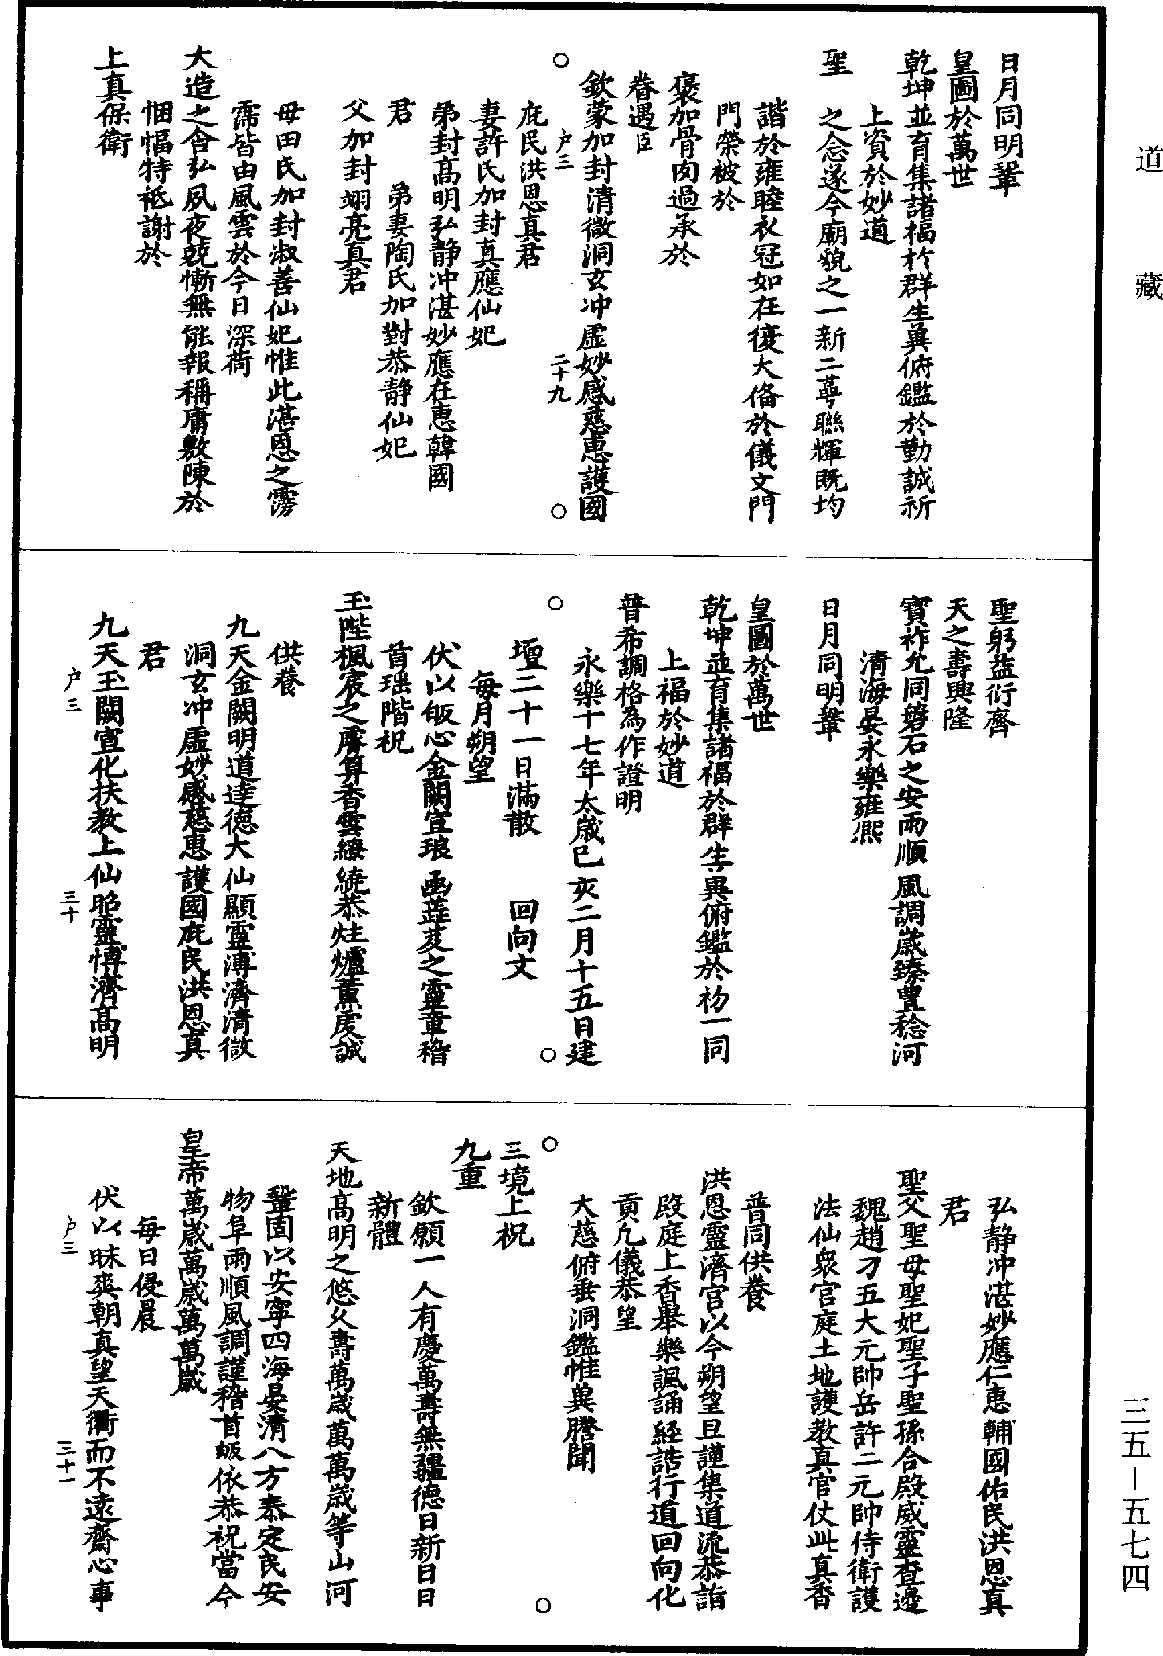 道藏
日月同明鞏
皇圖於萬世
乾坤並育集諸福於群生冀俯鑑於勤誠祈
上資於妙道
聖　之念遂今廟貌之一新二蕚聯輝既均
諧於雍睦衣冠如在復大俻於儀文門
門榮被於
褒加骨肉過承於
眷遇臣
欽蒙加封清微洞玄冲虛妙感慈惠護國
○　户三　二十九　○
庇民洪恩真君
妻許氏加封真應仙妃
弟封高明弘静冲湛妙應在惠韓國
君　弟妻陶氏加對恭静仙妃
父加封翊亮真君
母田氏加封淑善仙妃惟此湛恩之霶
霈皆由風雲於今日深荷
大造之含弘夙夜兢慚無能報稱庸敷陳於
悃愊特祗謝於
上真保衛
聖躬益衍齊
天之壽興隆
寳祚允同磐石之安雨順風調歲臻豐稔河
清海晏永樂雍熈
日月同明鞏
皇圖於萬世
乾坤並育集諸福於群生冀俯鑑於礿一同
上福於妙道
普希調格為作證明
永樂十七年太歲己亥二月十五日建
○　○
壇二十一日滿散　回向文
每月朔望
伏以皈心金闕宣琅函蘂芨之靈章稽
首瑶階祝
玉陛楓宸之膺算香雲繚繞恭炷爐薰虔誠
供養
九天金闕明道達德大仙顯靈溥濟清微
洞玄冲虛妙感慈惠護國庇民洪恩真
君
九天玉闕宣化扶教上仙昭靈愽濟高明
户三　三十
弘静冲湛妙應仁惠輔國佑民洪恩真
君
聖父聖母聖妃聖子聖孫合殿威靈查邊
魏趙刁五大元帥岳許二元帥侍衛護
法仙衆官庭土地護教真官仗此真香
普同供養
洪恩靈濟官以今朔望旦謹集道流恭詣
殿庭上香舉樂諷誦經誥行道回向化
貢凢儀恭望
大慈俯垂洞鑑惟冀謄聞
○　○
三境上祝
九重
欽願一人有慶萬壽無疆德日新日日
新體
天地高明之悠乆壽萬歲萬萬歲等山河
鞏固以安寧四海晏清八方泰定民安
物阜雨順風調謹稽首皈依恭祝當今
皇帝萬歲萬歲萬萬歲
每日侵晨
伏以昧爽朝真望天衢而不遠齋心事
户三　三十一
三五—五七四